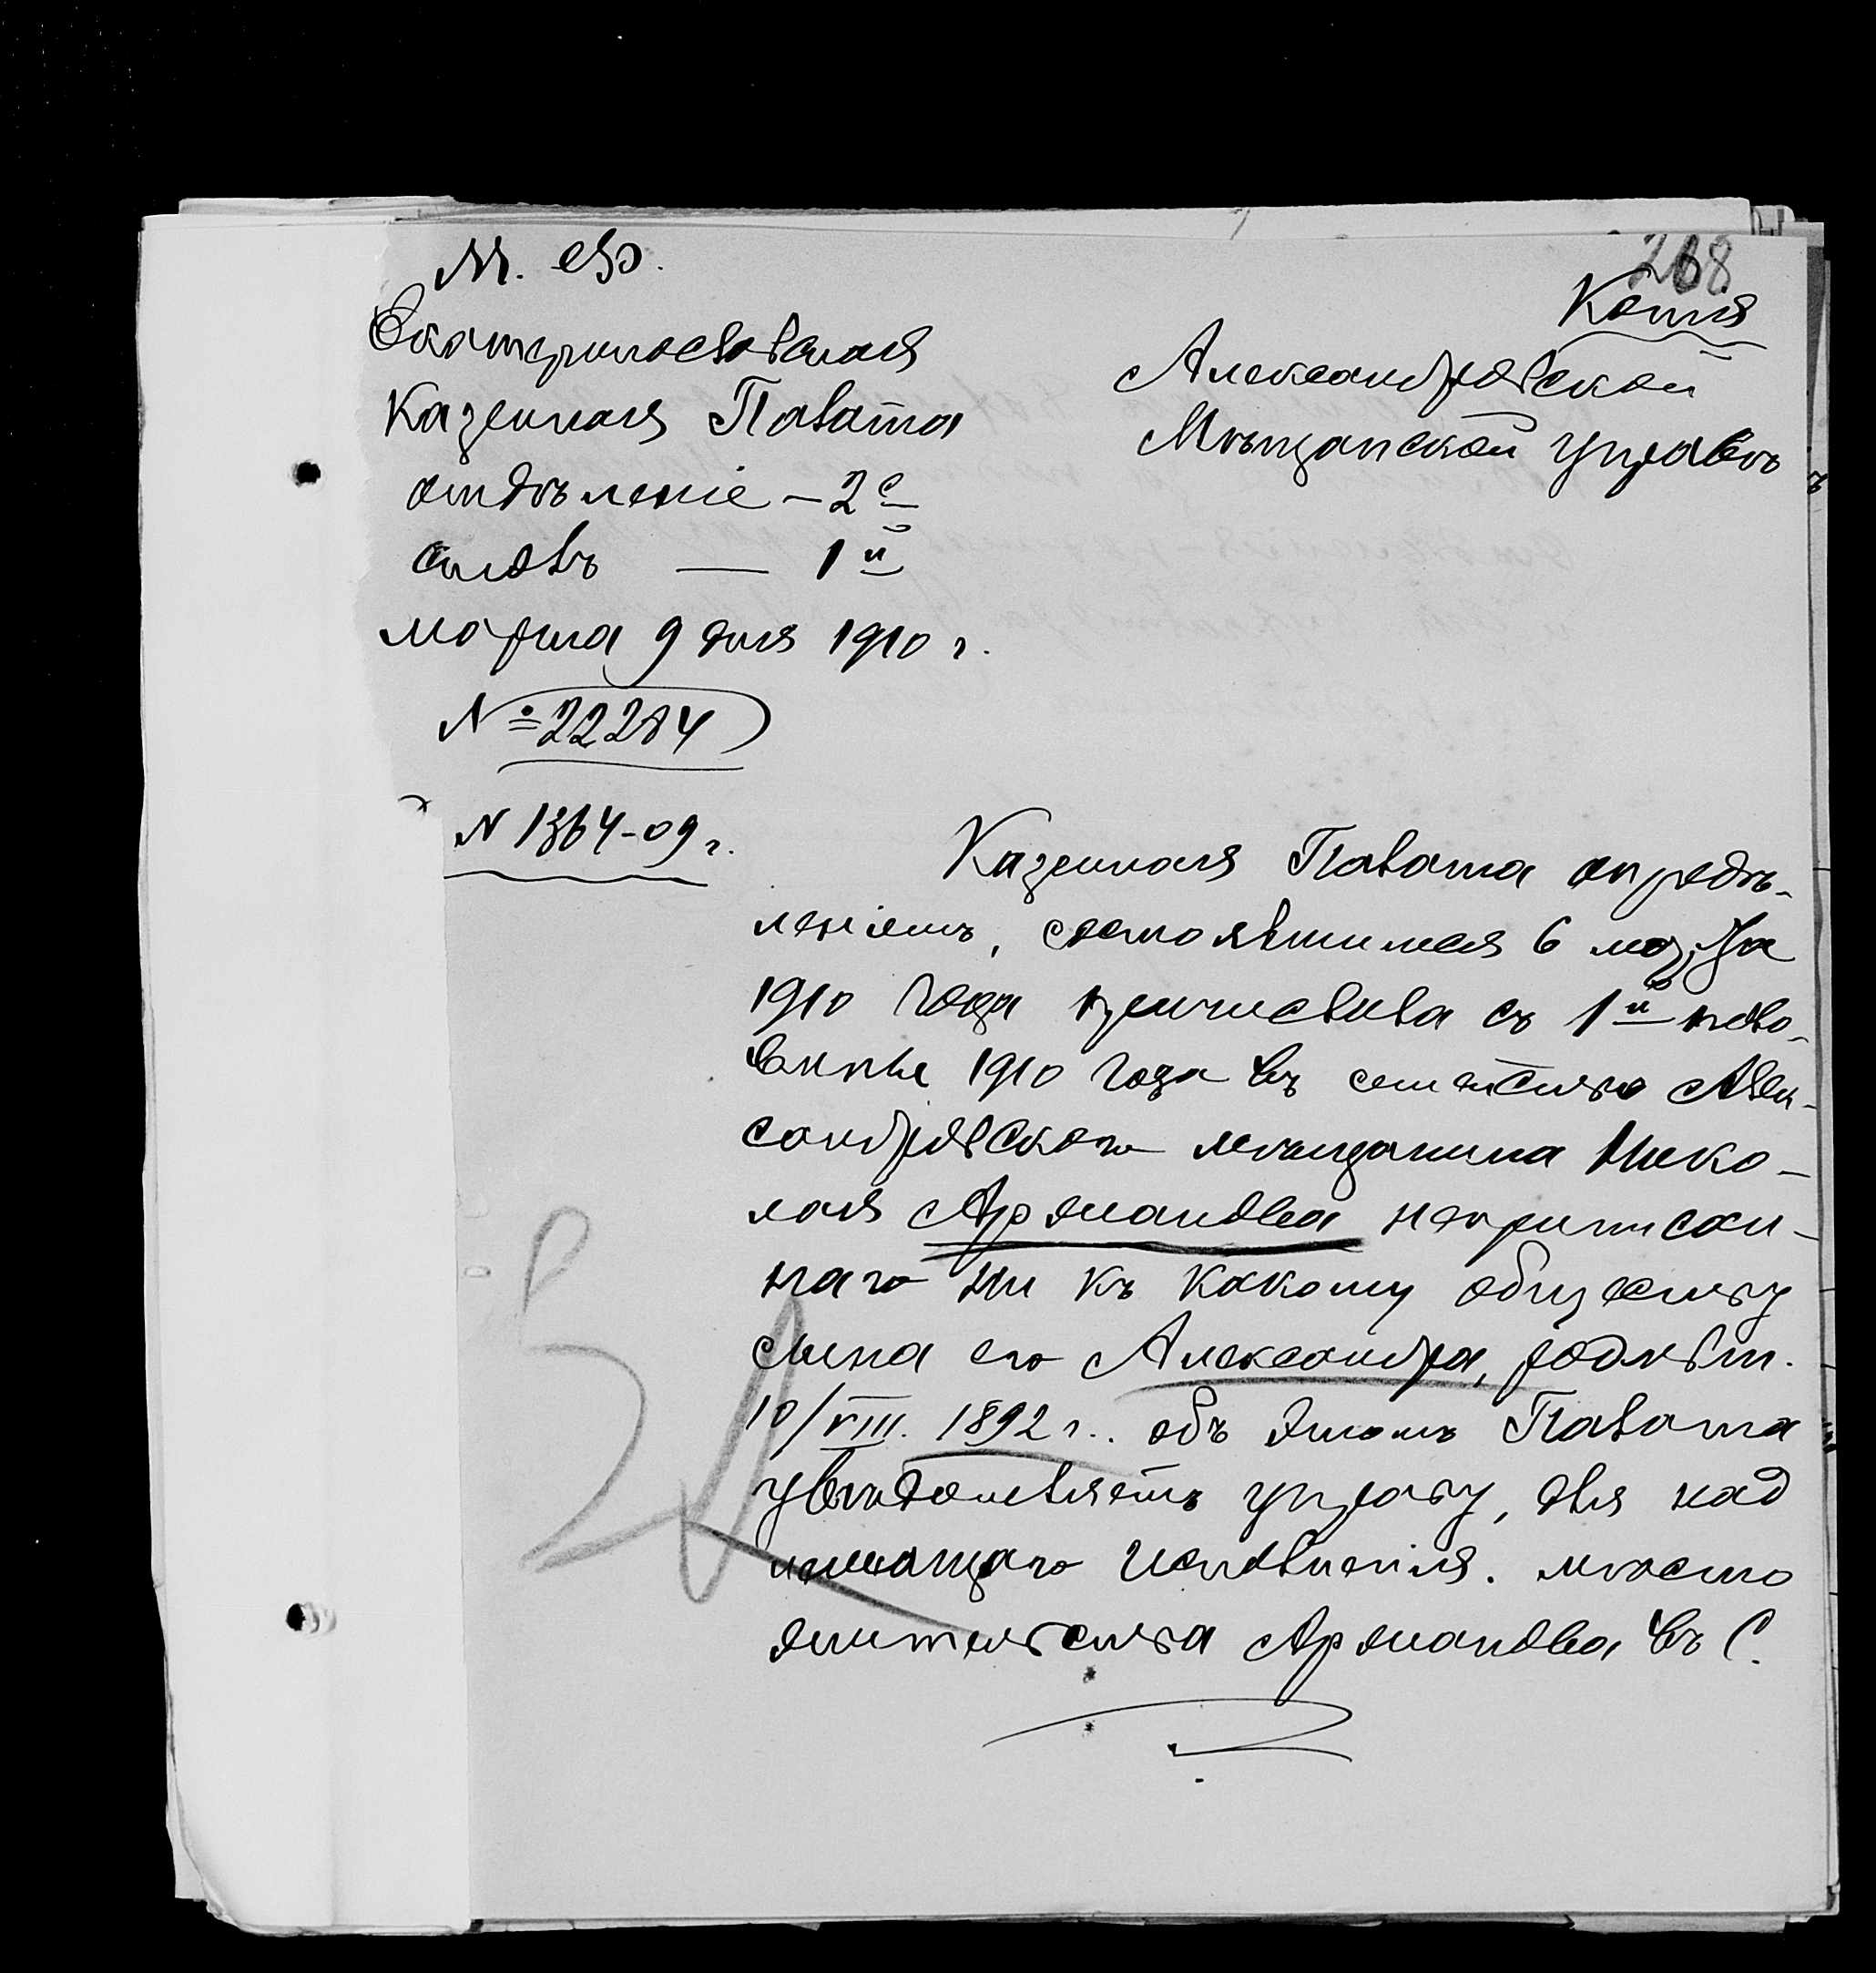 М. Ф.
268
Копія
Екатеринославская
Казенная Палата
отдѣленіе – 2е
столъ — 1й
марта 9 дня 1910 г.
№ 22284
N 1364-09 г.
Александровской
Мѣщанской управѣ
Казенная Палата опредѣ-
леніемъ, состоявшимся 6 марта
1910 года причислила съ 1й поло-
вины 1910 года въ семейство Алек-
сандровскаго мѣщанина Нико-
лая неприписан-
наго ни къ какому обществу
сына его Александра, родивш.
10/VIII. 1892 г.. объ этомъ Палата
увѣдомляетъ управу, для над
лежащаго исполненія. Мѣсто
жительства въ С.